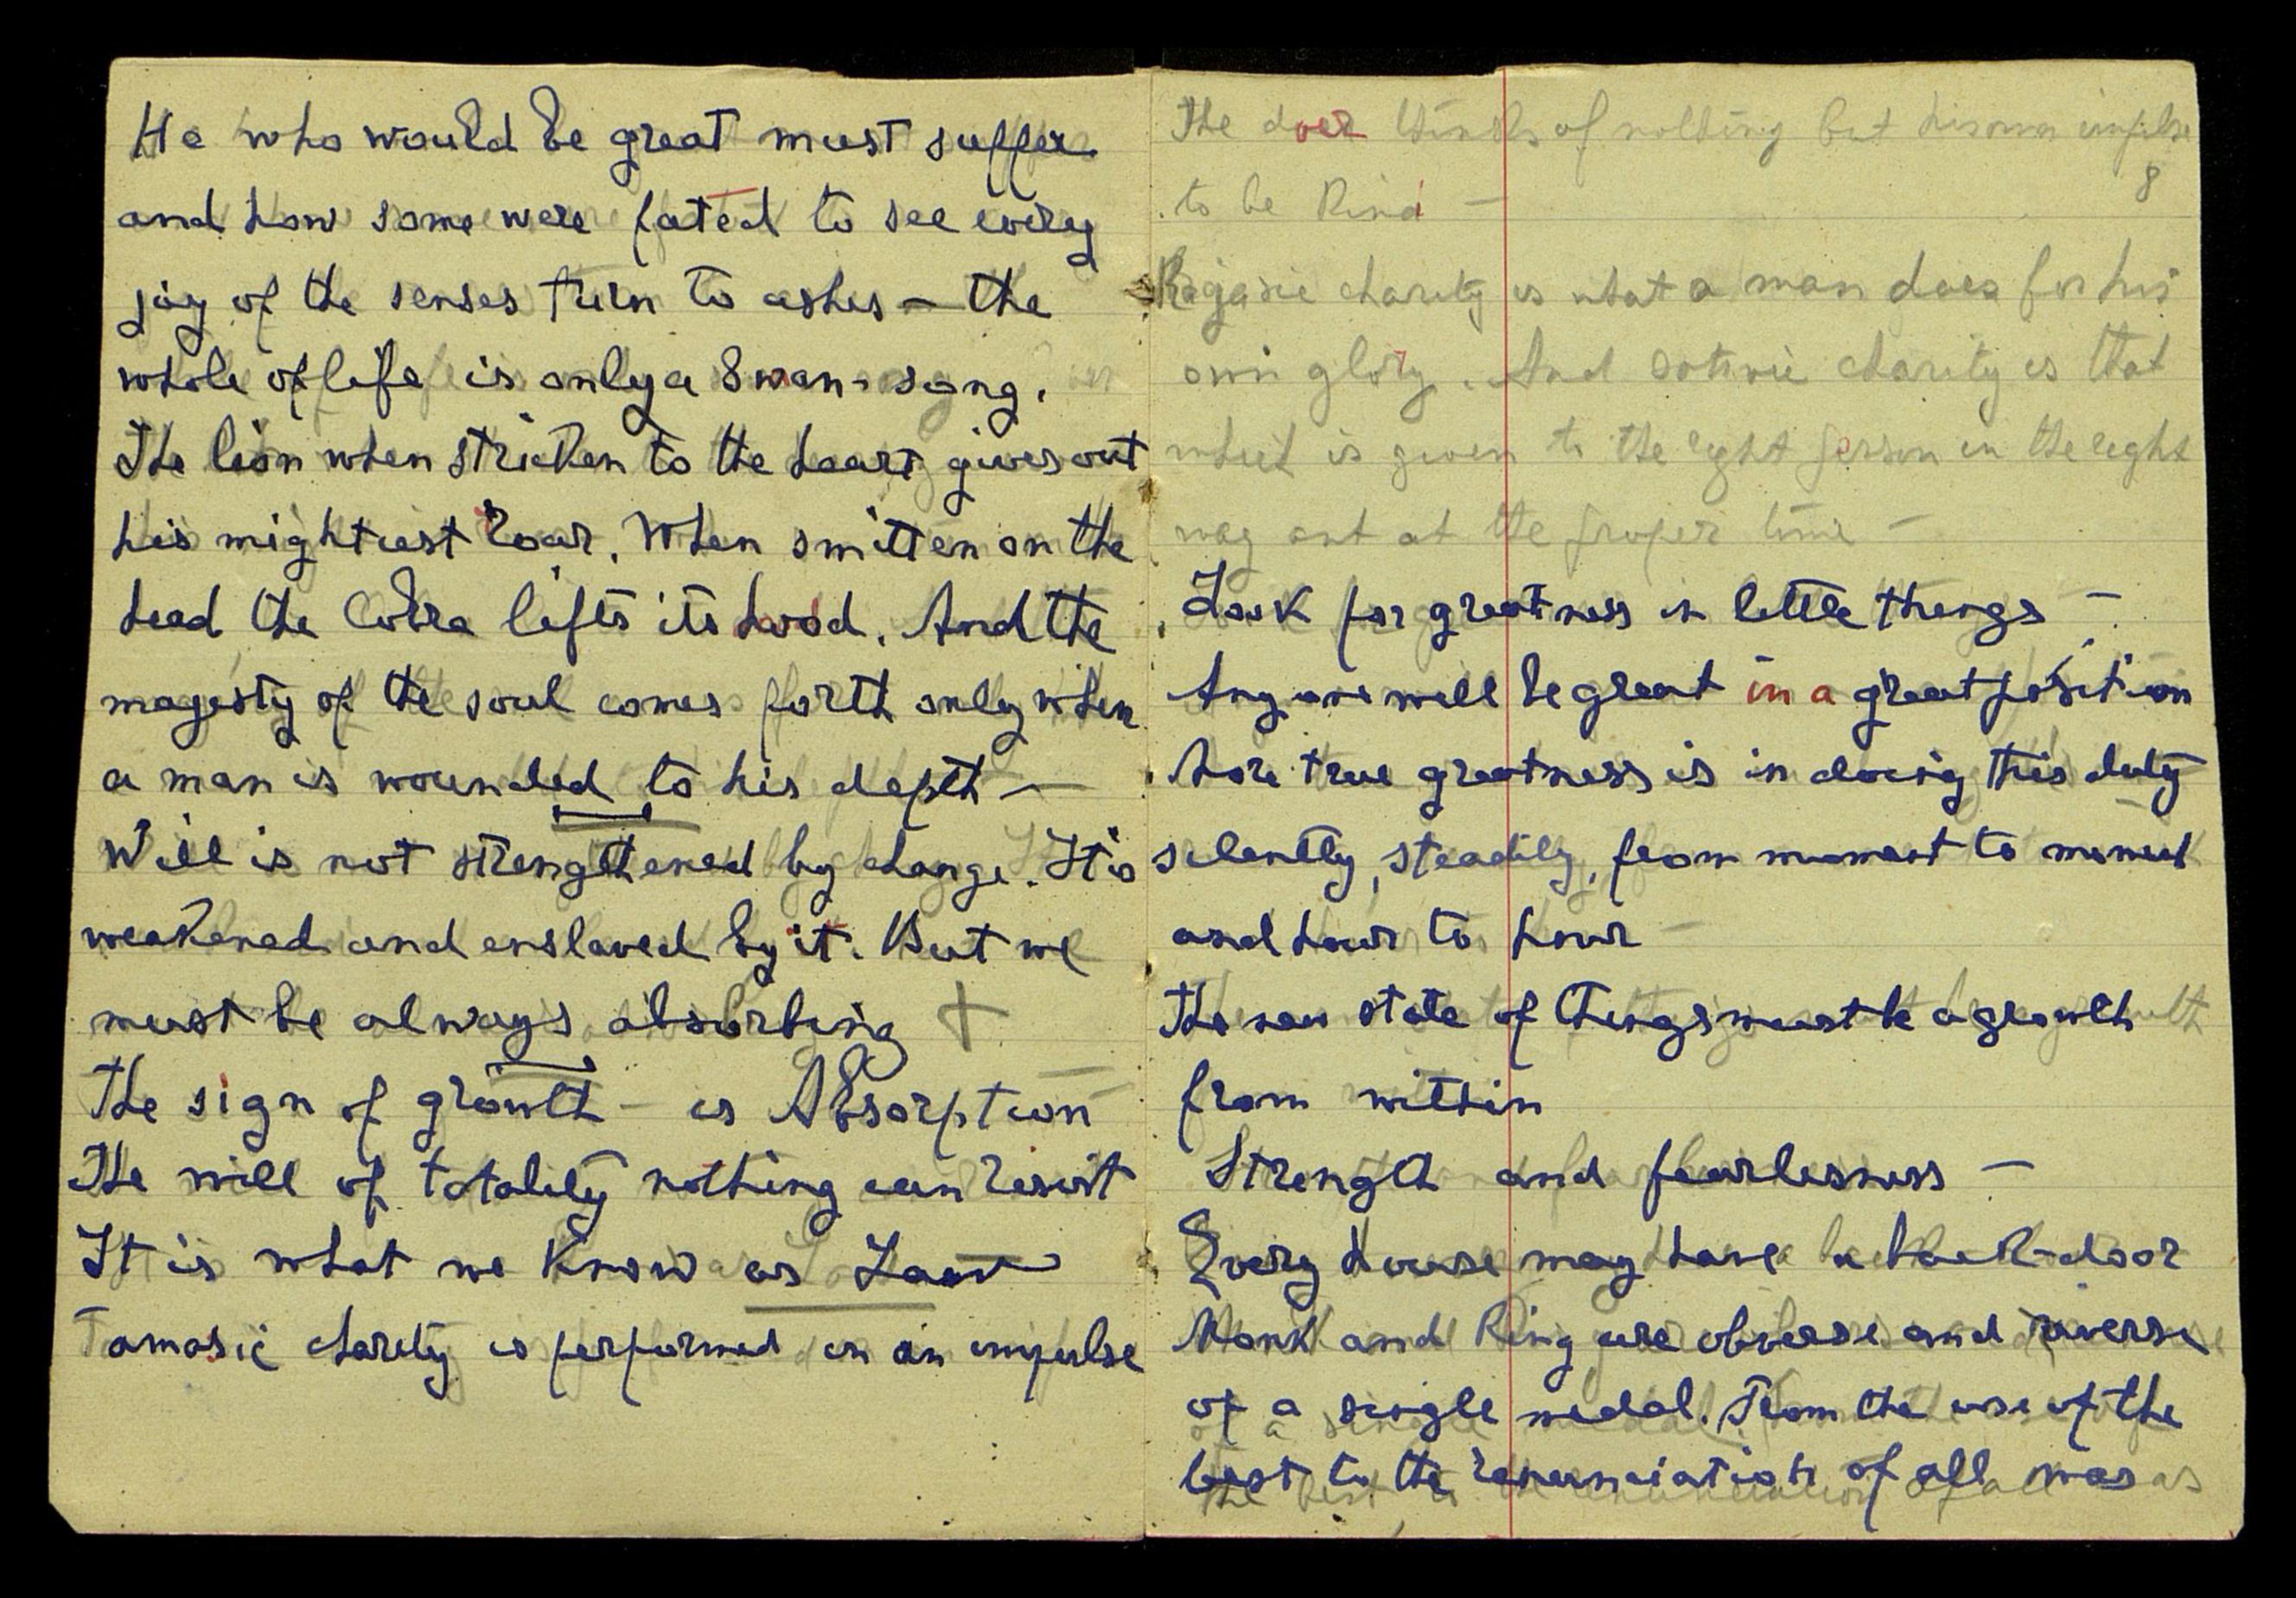 He who would be great must suffer
and how some were fated to see every
joy of the senses turn to ashes — the
whole of life is only a Swan-song.
The lion when stricken to the heart gives out
his mightiest roar. When smitten on the
head the Cobra lifts its hood. And the
magesty of the soul comes forth only when
a man is wounded to his depth —
Will is not strengthened by change. It is
weakened and enslaved by it. But we
must be always absorbing +
The sign of growth is Absorption
The will of totality nothing can resist
It is what we know as Law
Tamasic charity is performed on an impulse
The doer thinks of nothing but his own impulse
8
to be kind —
Rajasic charity is what a man does for his
own glory. And satvic charity is that
which is given to the right person in the right
way and at the proper time —
Look for greatness in little things —
Any one will be great in a great position
More true greatness is in doing this duty
silently, steadily, from moment to moment
and hour to hour
The new state of things must be a growth
from within
Strength and fearlessness —
Every house may have a back-door
Monk and King are obverse and reverse
of a single medal. From the use of the
best to the renunciation of all was